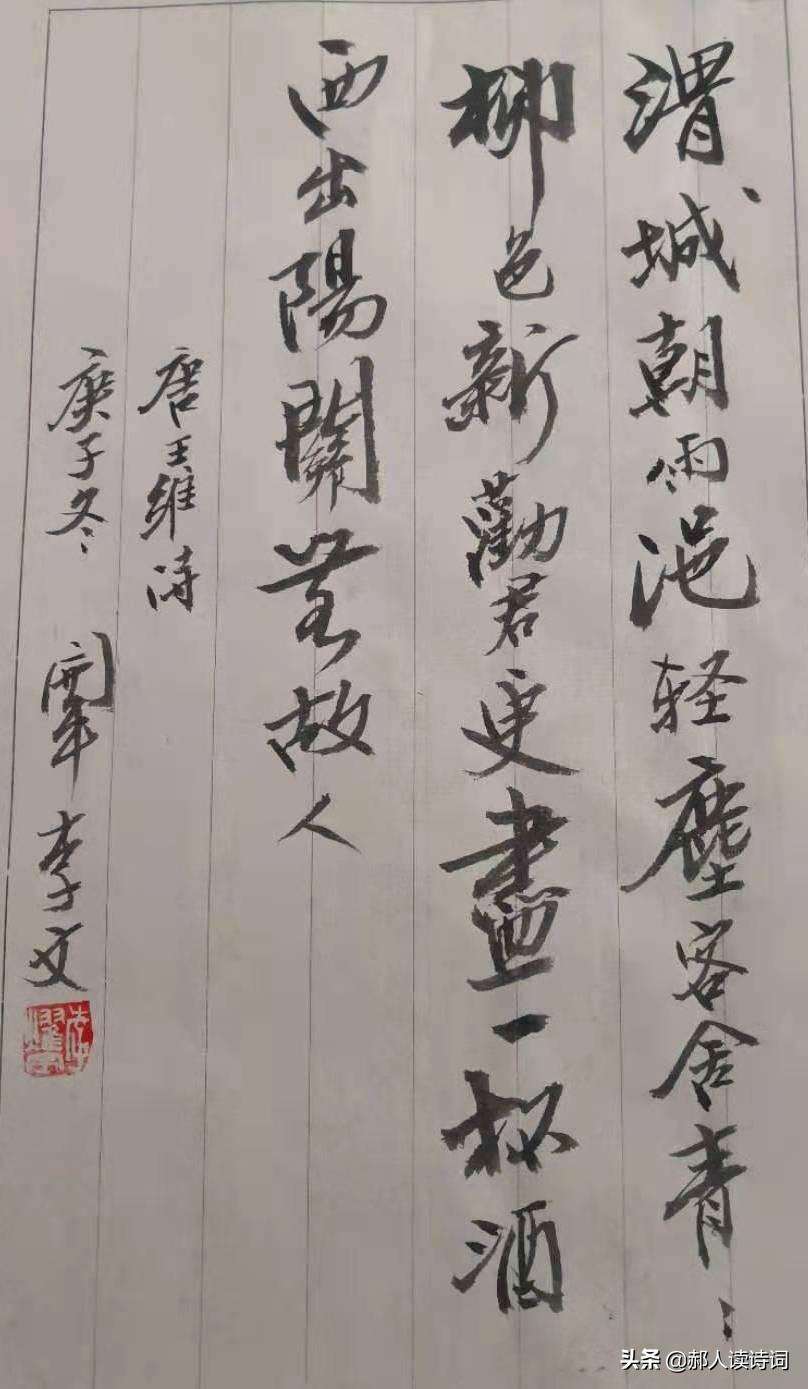 渭城朝雨浥轻塵客舍青：
柳色新勸君更盡一杯酒
西出陽關無故人
唐王維诗
庚子冬 李文
头条 @郝人读诗词